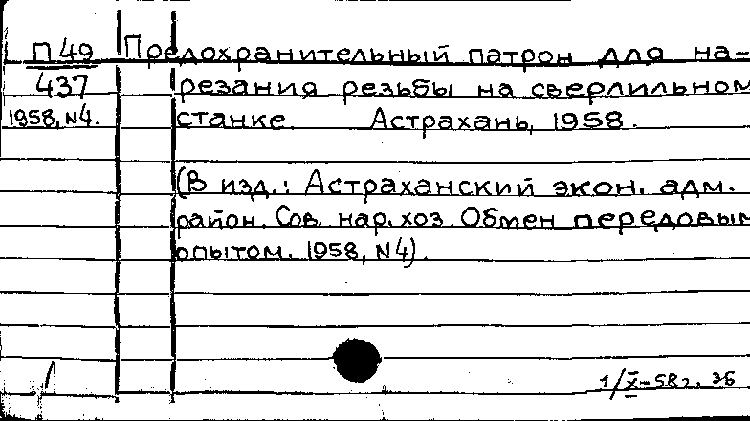 П 49 Предохранительный патрон для на-
437 резания резьбы на сверлильном
1958, N4. станке. Астрахань, 1958.
(В изд.: Астраханский экон. адм.
район. Сов. нар. хоз. Обмен передовым
опытом. 1958, N4).
1/X-58г. ЗБ